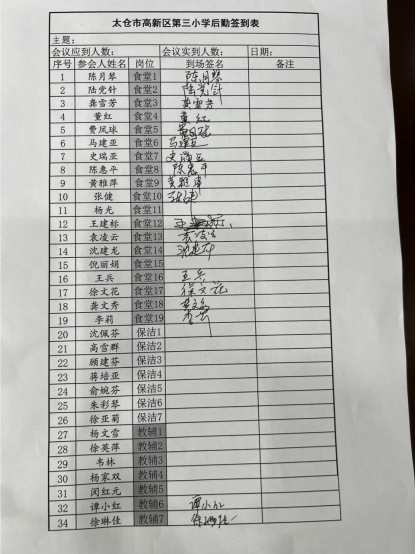 太仓市高新区第三小学后勤签到表
主题:
会议应到人数: 会议实到人数: 日期:
序号 参会人姓名 岗位 到场签名 备注
1 陈月琴 食堂1 陈月琴
2 陆党针 食堂2 陆党针
3 龚雪芳 食堂3 龚雪芳
4 董红 食堂4 董红
5 费凤球 食堂5 费凤球
6 马建亚 食堂6 马建亚
7 史瑞亚 食堂7 史瑞亚
8 陈惠平 食堂8 陈惠平
9 黄雅萍 食堂9 黄雅萍
10 张健 食堂10 张健
11 杨光 食堂11
12 王建标 食堂12
13 袁凌云 食堂13 袁凌云
14 沈建龙 食堂14 沈建龙
15 倪丽娟 食堂15
16 王兵 食堂16 王兵
17 徐文花 食堂17 徐文花
18 龚文秀 食堂18
19 李莉 食堂19 李莉
20 沈佩芬 保洁1
21 高雪群 保洁2
22 顾建芬 保洁3
23 蒋培亚 保洁4
24 俞婉芬 保洁5
25 朱彩琴 保洁6
26 徐亚菊 保洁7
27 杨文雪 教辅1
28 徐英萍 教辅2
29 韦林 教辅3
30 杨家双 教辅4
31 闵红元 教辅5
32 谭小红 教辅6 谭小红
34 徐琳佳 教辅7